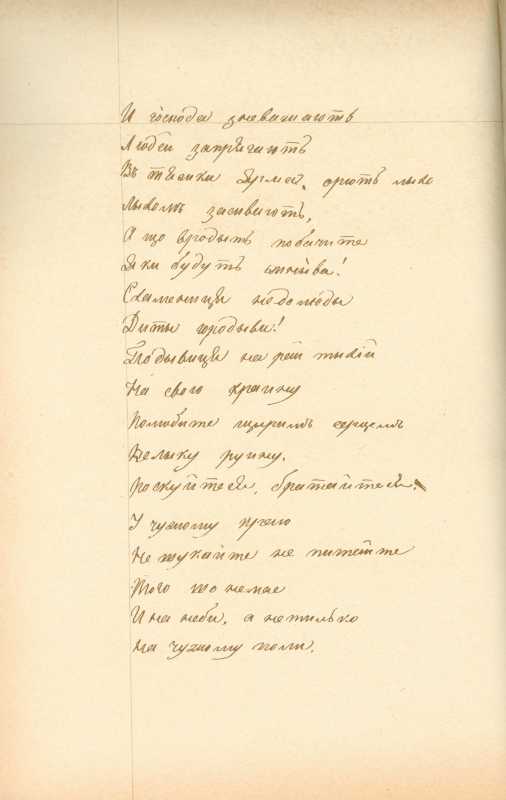 И господа зневажають
Людей запрягають
Въ тяжки ярма. орють лыхо
Лыхомъ засивають,
А що вродыть побачите
Яки будуть жныва!
Схаменицця недолюды
Диты юродыви!
Подывицця на рай тыхій
На свою краину
Полюбите щиримъ серцемъ
Велыку руину.
Роскуйтеся, братайтеся.
У чужому краю
Не шукайте не питайте
Того що немае
И на неби, а нетилько
На чужому поли.